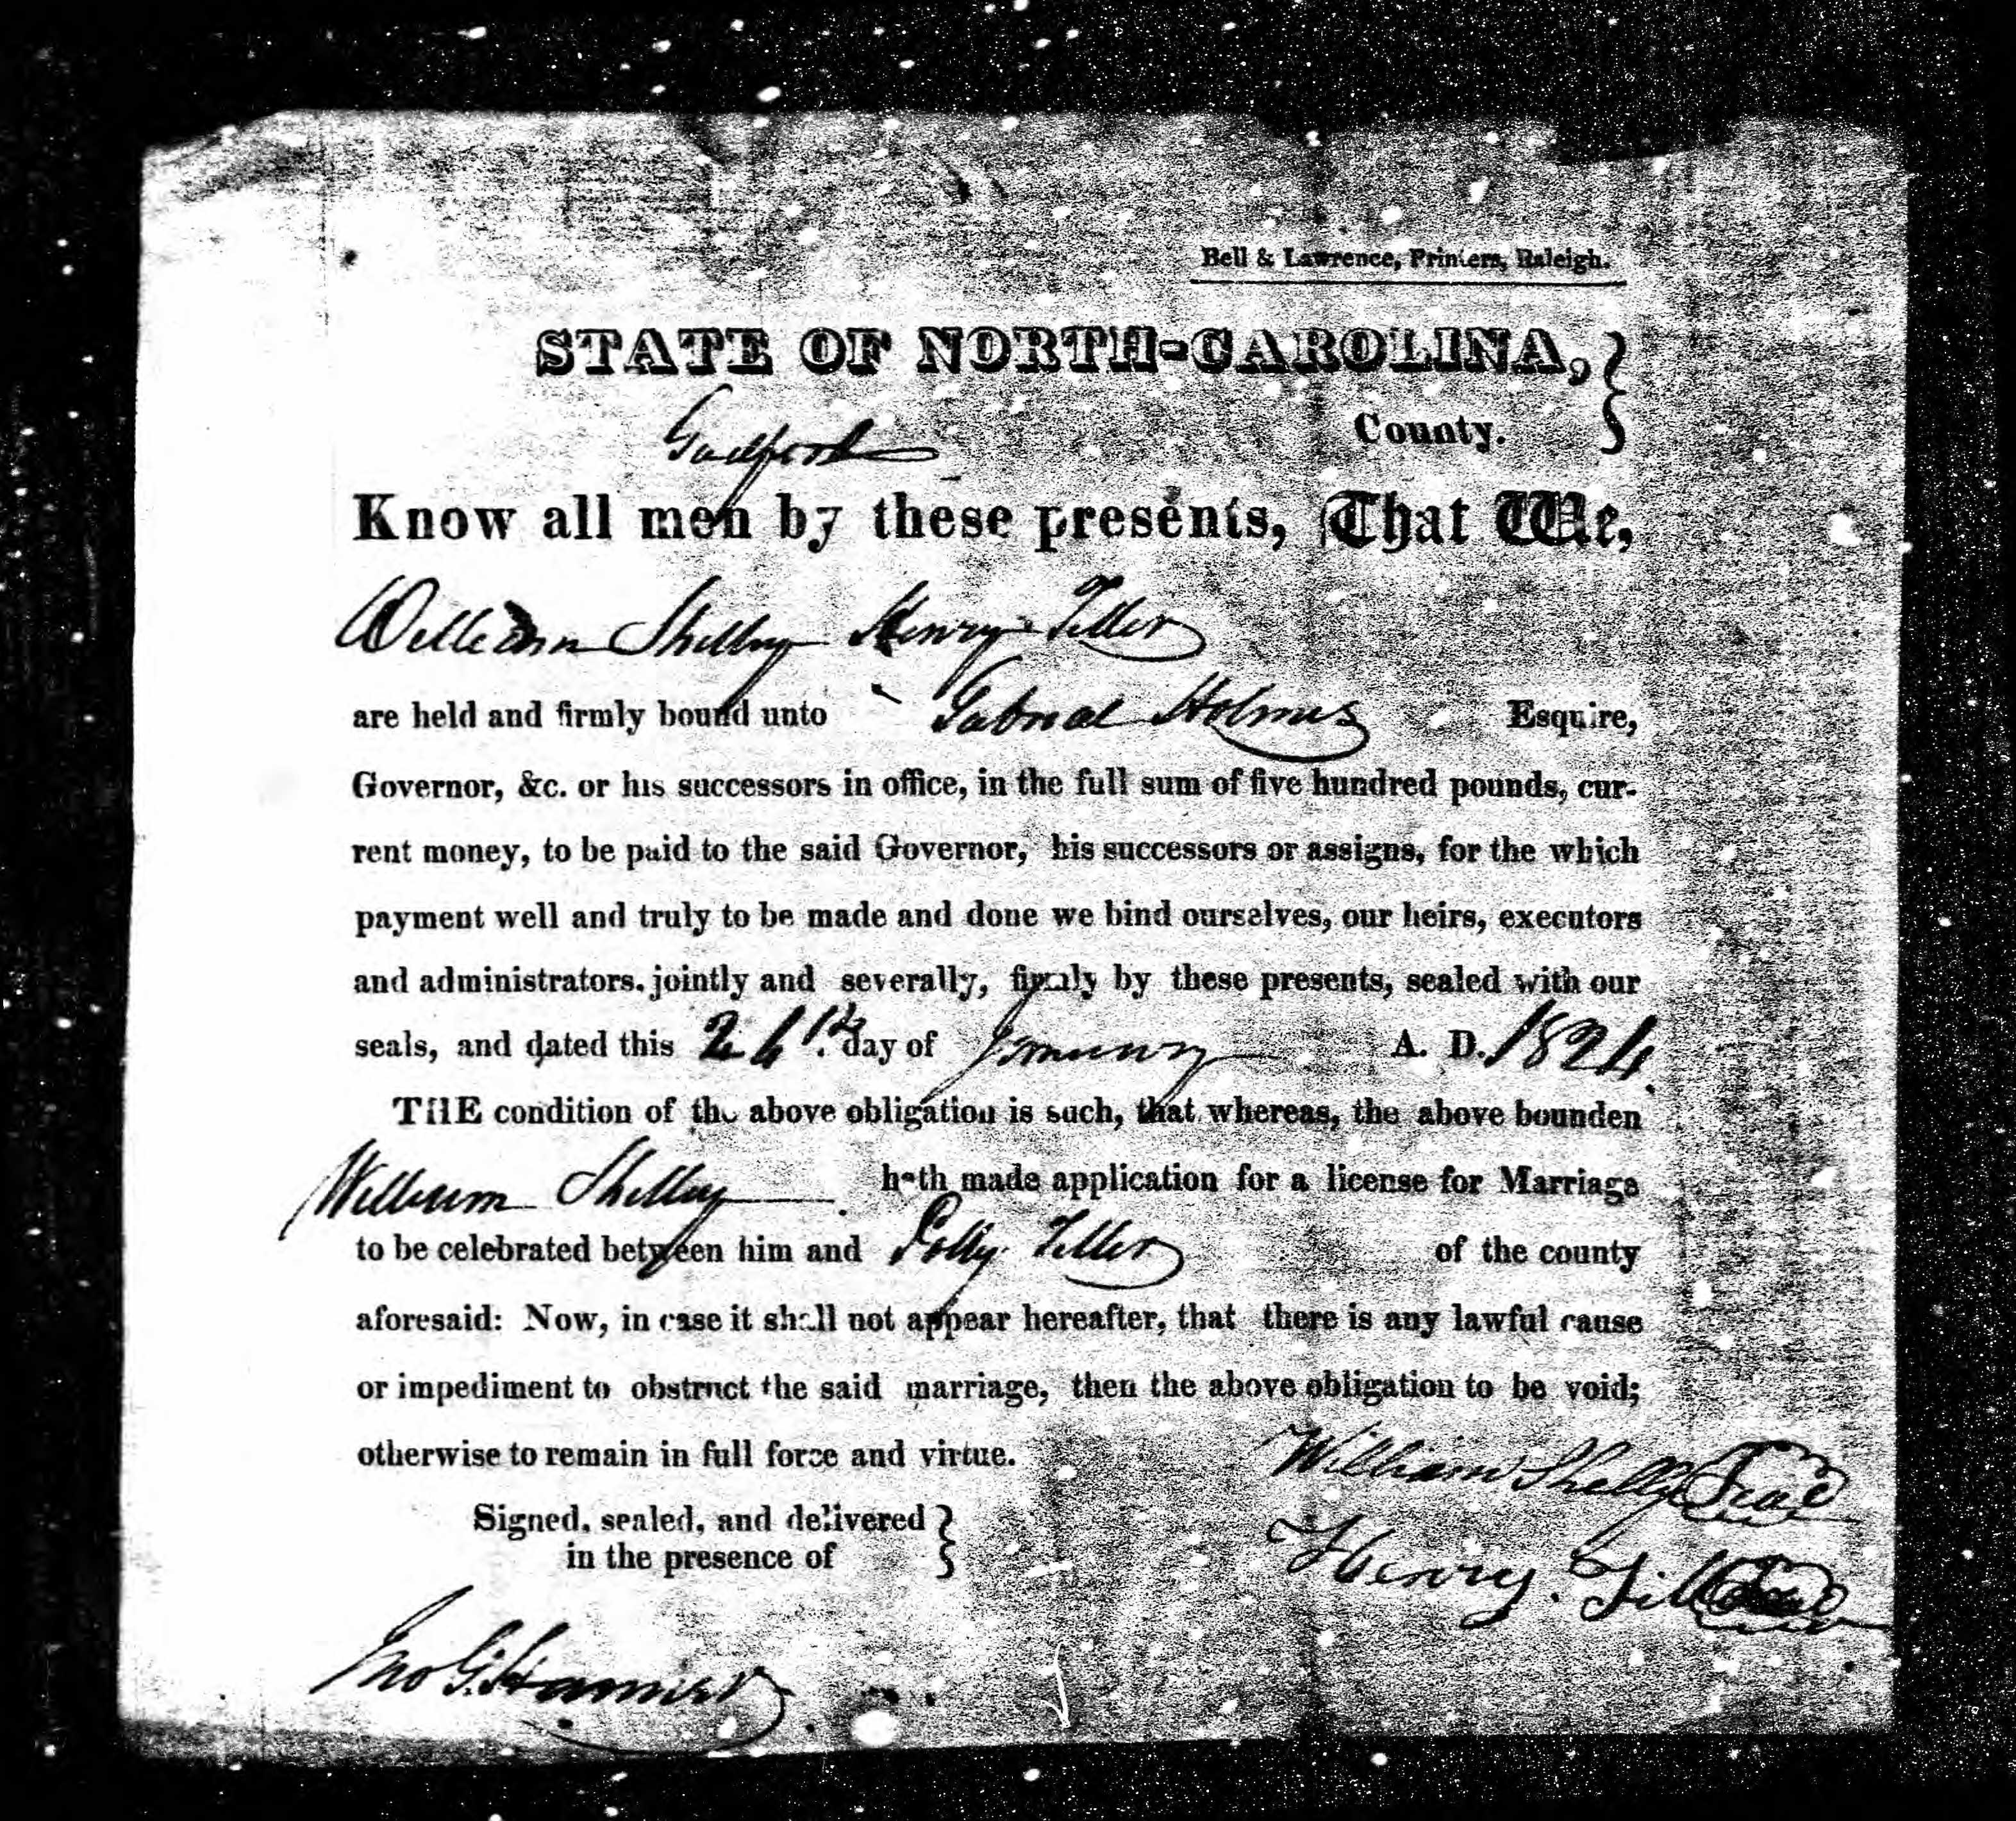 Bell & Lawrence, Printers, Raleigh.
STATE OF NORTH-CAROLINA,
Guilford County.
Know all men by these presents, That We,
William Shelly Henry Teller
are held and firmly bound unto Gabriel Holmes Esquire,
Governor, &c. or his successors in office, in the full sum of five hundred pounds, cur-
rent money, to be paid to the said Governor, his successors or assigns, for the which
payment well and truly to be made and done we bind ourselves, our heirs, executors
and administrators, jointly and severally, firmly by these presents, sealed with our
seals, and dated this day of January A. D. 1824.
THE condition of the above obligation is such, that whereas, the above bounden
William Shelly hath made application for a license for Marriage
to be celebrated between him and Polly Teller of the county
aforesaid: Now, in case it shall not appear hereafter, that there is any lawful cause
or impediment to obstruct the said marriage, then the above obligation to be void;
otherwise to remain in full force and virtue.
William Shelly Seal
Signed, sealed, and delivered
in the presence of
Henry Seal
Jno G. Hanner